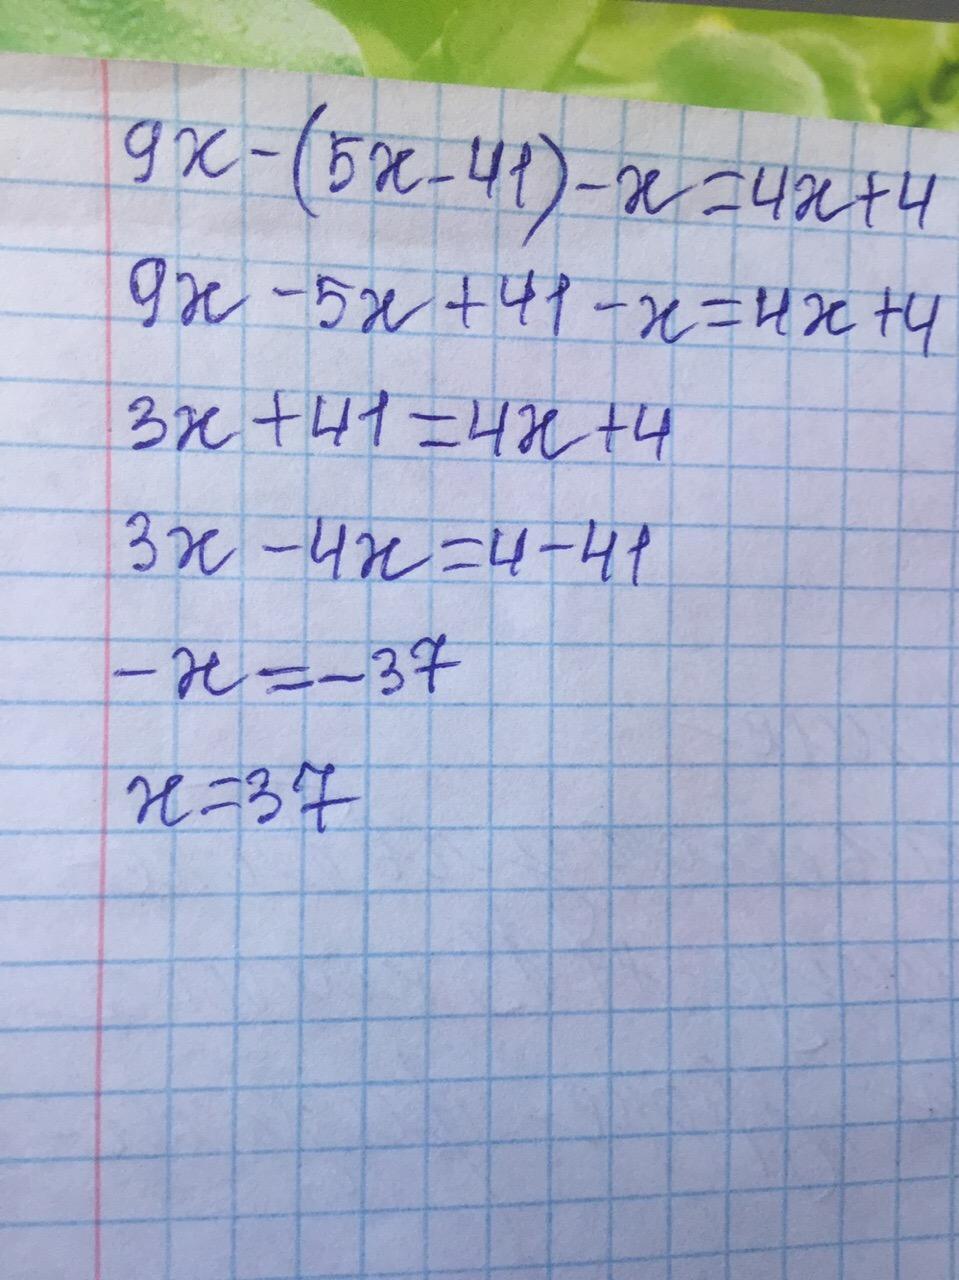 9x-(5x-41)-x=4x+4
9x-5x+41-x=4x+4
3x+41=4x+4
3x-4x=4-41
-x=-37
x=37